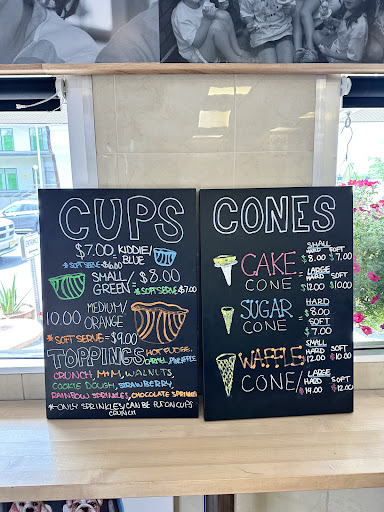 CUPS
$7.00 KIDDIE/
BLUE
* SOFT SERVE $6.00
SMALL/ = $8.00
GREEN * SOFT SERVE $7.00
MEDIUM/
10.00 ORANGE
* SOFT SERVE = $9.00
TOPPINGS HOT FUDGE,
CARMEL, PINEAPPLE
CRUNCH, M+M, WALNUTS,
COOKIE DOUGH, STRAWBERRY,
RAINBOW SPRINKLES, CHOCOLATE SPRINKLES
* ONLY SPRINKLES CAN BE PUT ON CUPS
CRUNCH
CONES
CAKE
CONE
SMALL
HARD SOFT
$8.00 $7.00
LARGE
HARD SOFT
$12.00 $10.00
SUGAR
CONE
HARD
$8.00
SOFT
$7.00
WAFFLE
CONE/
SMALL
HARD SOFT
$12.00 $10.00
LARGE
HARD SOFT
$14.00 $12.00